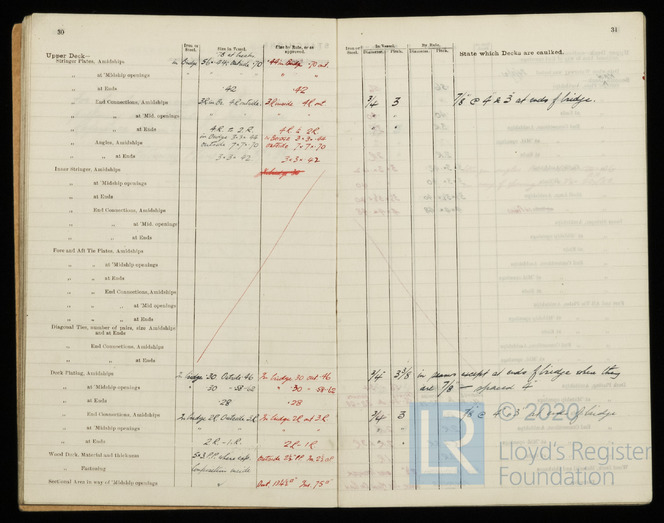 30
Upper Deck—
Iron or Steel.
Size in Vessel.
Size by Rule, or as approved.
Stringer Plates, Amidships
in Bridge 56 × .44 outside .70
.70 out.
„ at 'Midship openings
„ at Ends
.42
.42
End Connections, Amidships
3R in Br. 4R outside.
3R inside 4R out
„ „ at 'Mid. openings
„ „ at Ends
4R & 2R
4R & 2R
„ Angles, Amidships
in Bridge 3×3×.44
outside 7×7×.70
3×3×.44
outside 7×7×.70
„ „ at Ends
3×3×.42
3×3×.42
Inner Stringer, Amidships
„ at 'Midship openings
„ at Ends
End Connections, Amidships
„ „ at 'Mid. openings
„ „ at Ends
Fore and Aft Tie Plates, Amidships
„ „ at 'Midship openings
„ „ at Ends
„ „ End Connections, Amidships
„ „ at 'Mid openings
„ „ at Ends
Diagonal Ties, number of pairs, size Amidships and at Ends
„ End Connections, Amidships
„ „ at Ends
Deck Plating, Amidships
In bridge .30 Outside .46
In bridge .30 out .46
„ at 'Midship openings
" .30 - .58-.62
" .30 - .58-.62
„ at Ends
.28
.28
„ End Connections, Amidships
In bridge 2R. Outside 3R
In bridge 2R out 3R
„ „ at 'Midship openings
„ „ at Ends
2R - 1R
2R - 1R
Wood Deck, Material and thickness
outside 2½" PP
„ Fastening
Composition inside
Sectional Area in way of 'Midship openings
31
Iron or Steel.
In Vessel.
By Rule.
Diameter.
Pitch.
Diameter.
Pitch.
State which Decks are caulked.
3/4 3
7/8 @ 4 & 3 at ends of bridge.
3/4 3 3/8
in seams except at ends of bridge where they
are 7/8 — spaced 4"
3/4 3
7/8 @ 4 & 3 at ends of bridge
© 2020
LR
Lloyd's Register
Foundation